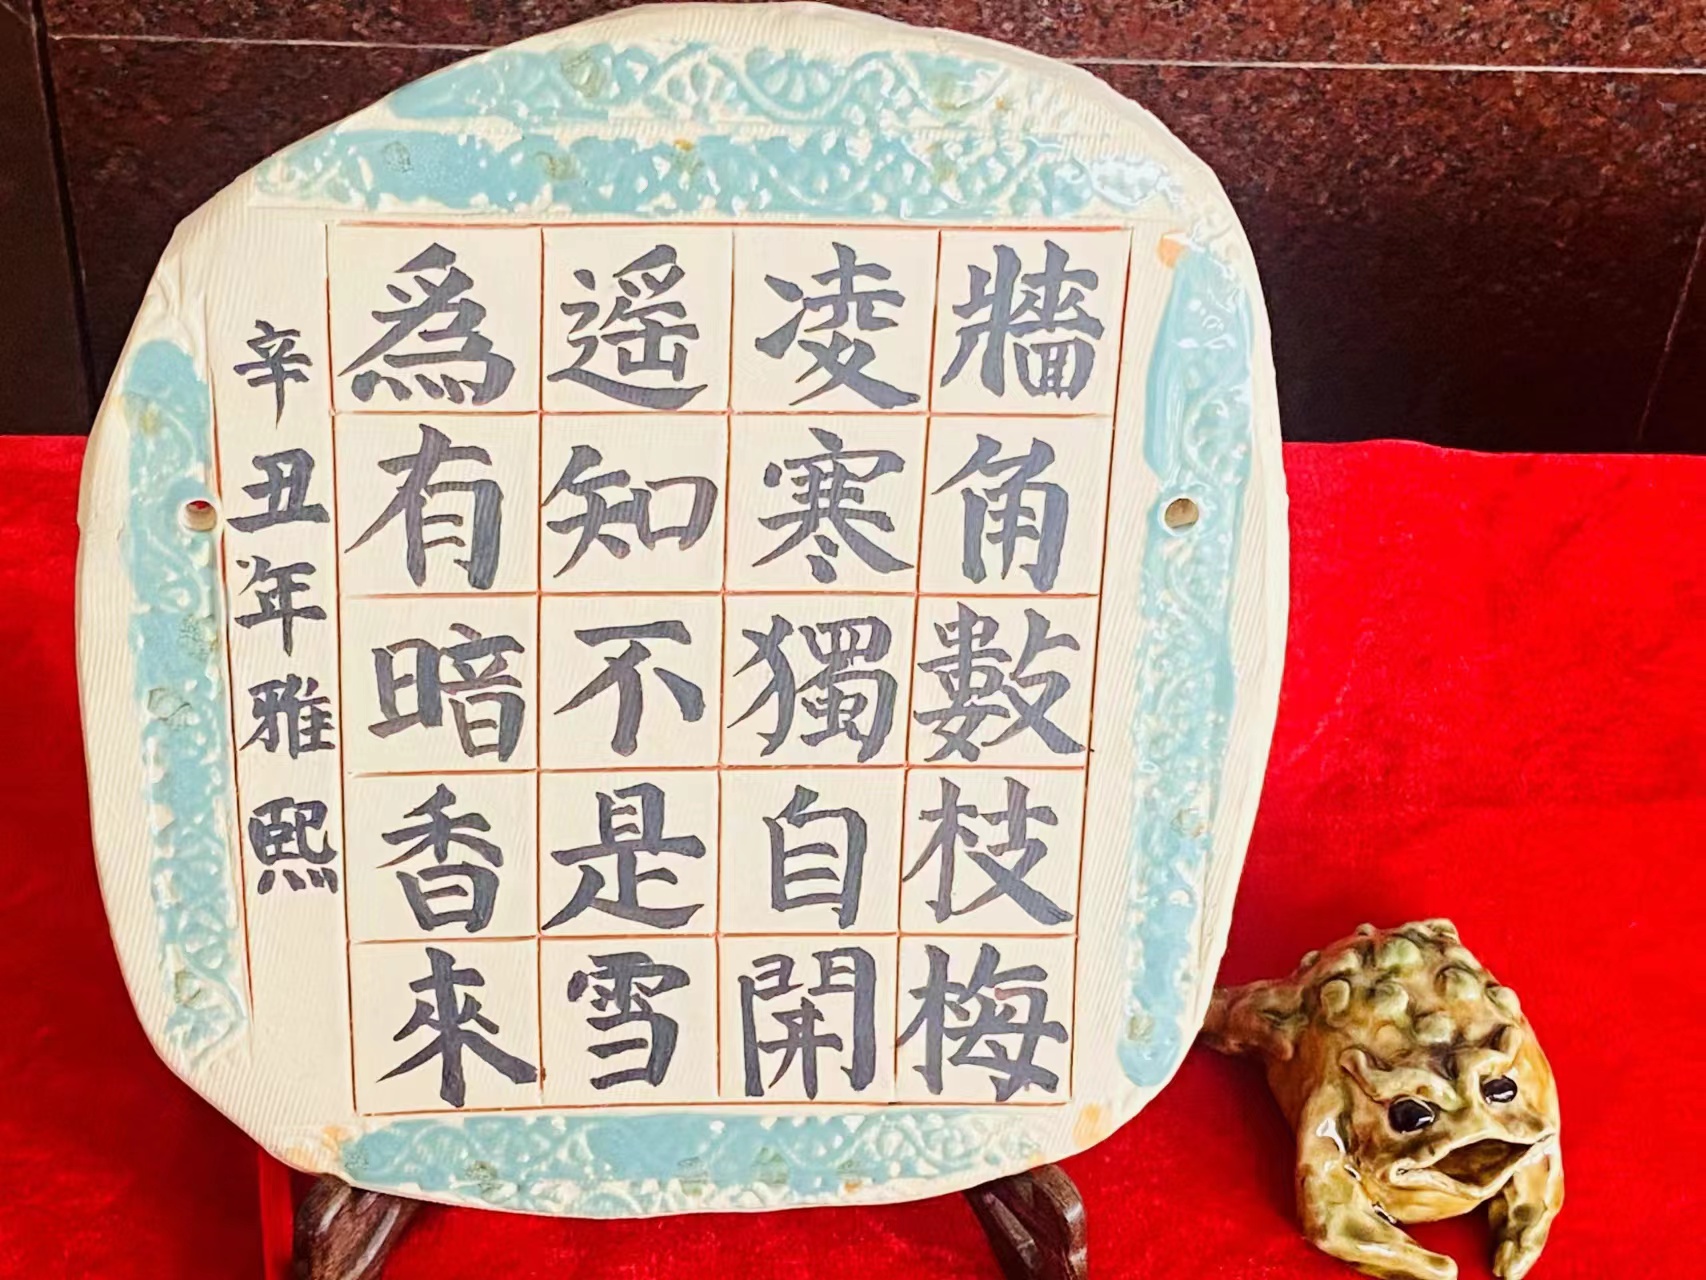 牆角數枝梅
凌寒獨自開
遥知不是雪
爲有暗香來
辛丑年雅熙